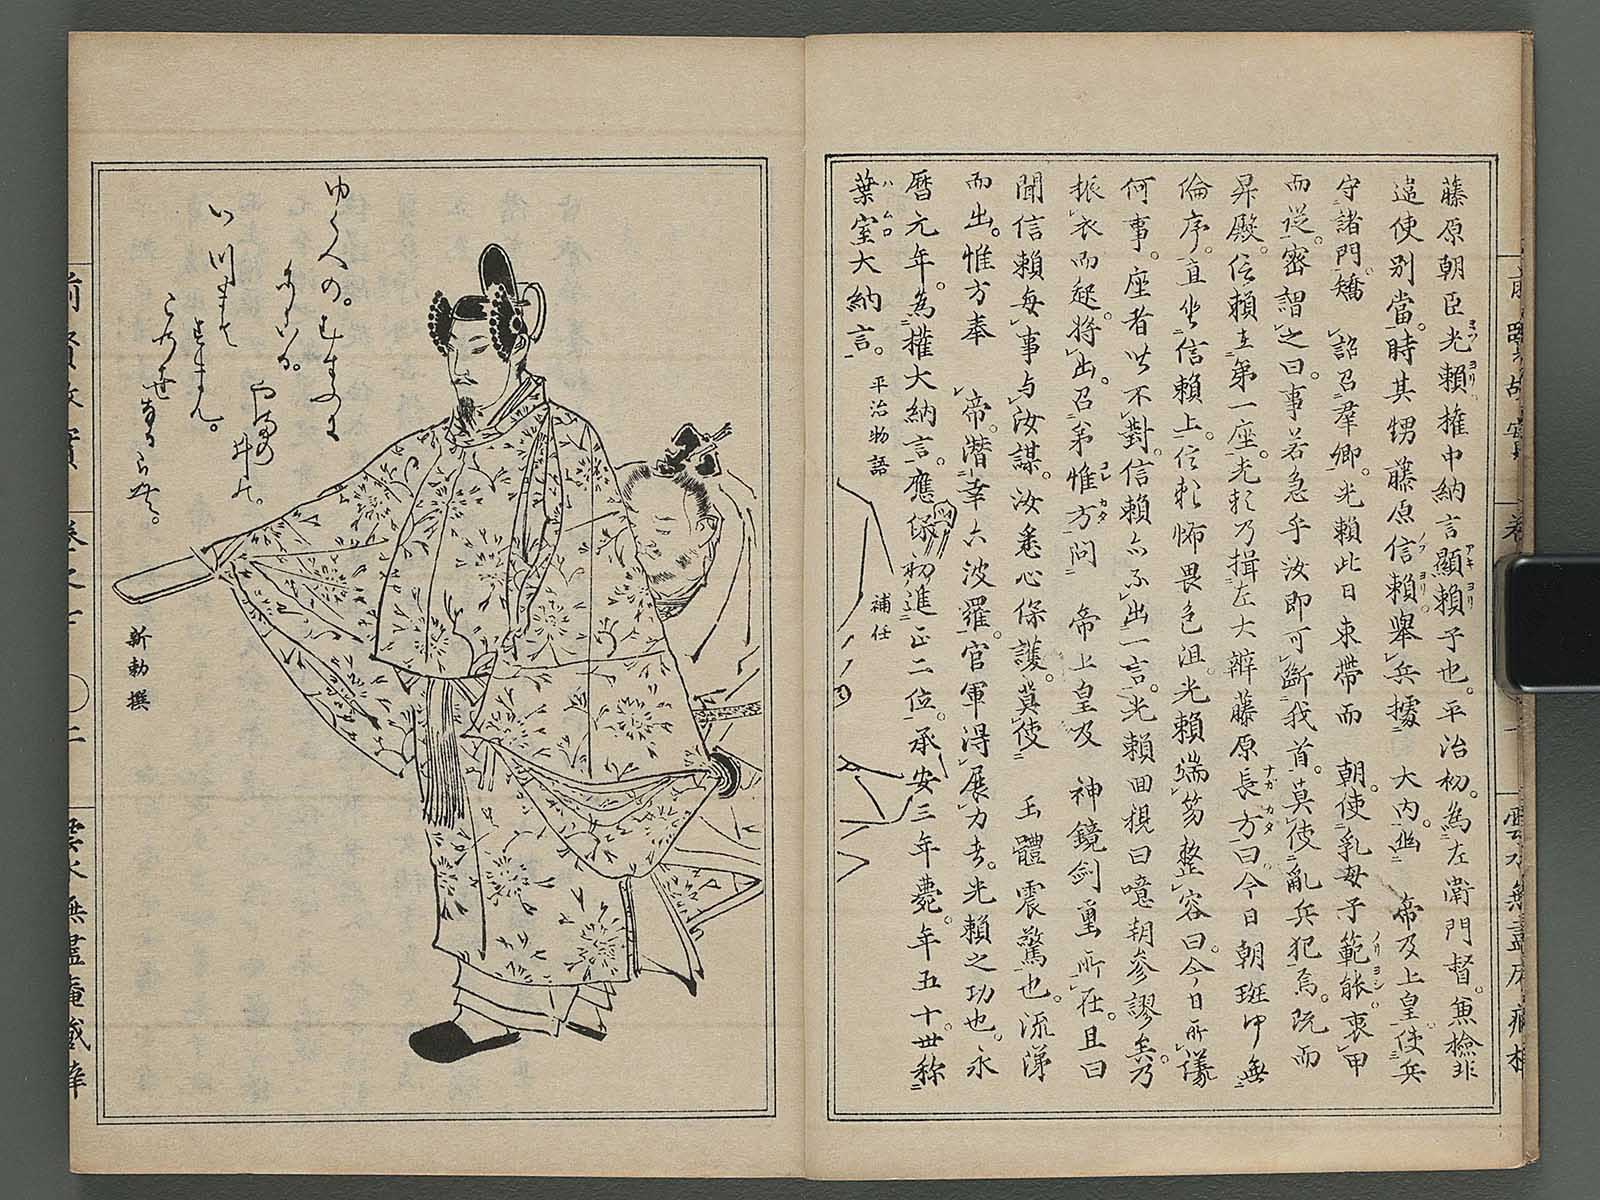 藤原朝臣光賴權中納言顯賴子也。平治初。為左衛門督。兼檢非
違使別當。時其甥藤原信賴。舉兵據 大內。幽 帝及上皇。使兵
守諸門。矯 詔召羣卿。光賴此日束帶而 朝。使乳母子範能。衷甲
而從。密謂之曰。事若急乎汝即可斷我首。莫使亂兵犯焉。既而
昇殿。信賴在第一座。光賴乃揖左大辨藤原長方曰。今日朝班毋無
倫序。直坐信賴上。信賴怖畏色沮。光賴端笏整容曰。今日所議
何事。座者皆不對。信賴亦不出一言。光賴回視曰噫朝參謬矣。乃
振衣而起。將出。召弟惟方問 帝上皇及 神鏡劍璽所在。且曰
聞信賴每事与汝謀。汝悉心保護。莫使 玉體震驚也。流涕
而出。惟方奉 帝。潛幸六波羅。官軍得展力者。光賴之功也。永
曆元年。為權大納言。應保初進正二位。承安三年薨。年五十。世稱
葉室大納言。 平治物語 補任
ゆく人の。むすふに
にこる。
やまの井の。
いつまて
すまん。
この世なるらむ。
新勅撰
前賢故實 卷之七 〇二 雲水無盡庵藏梓